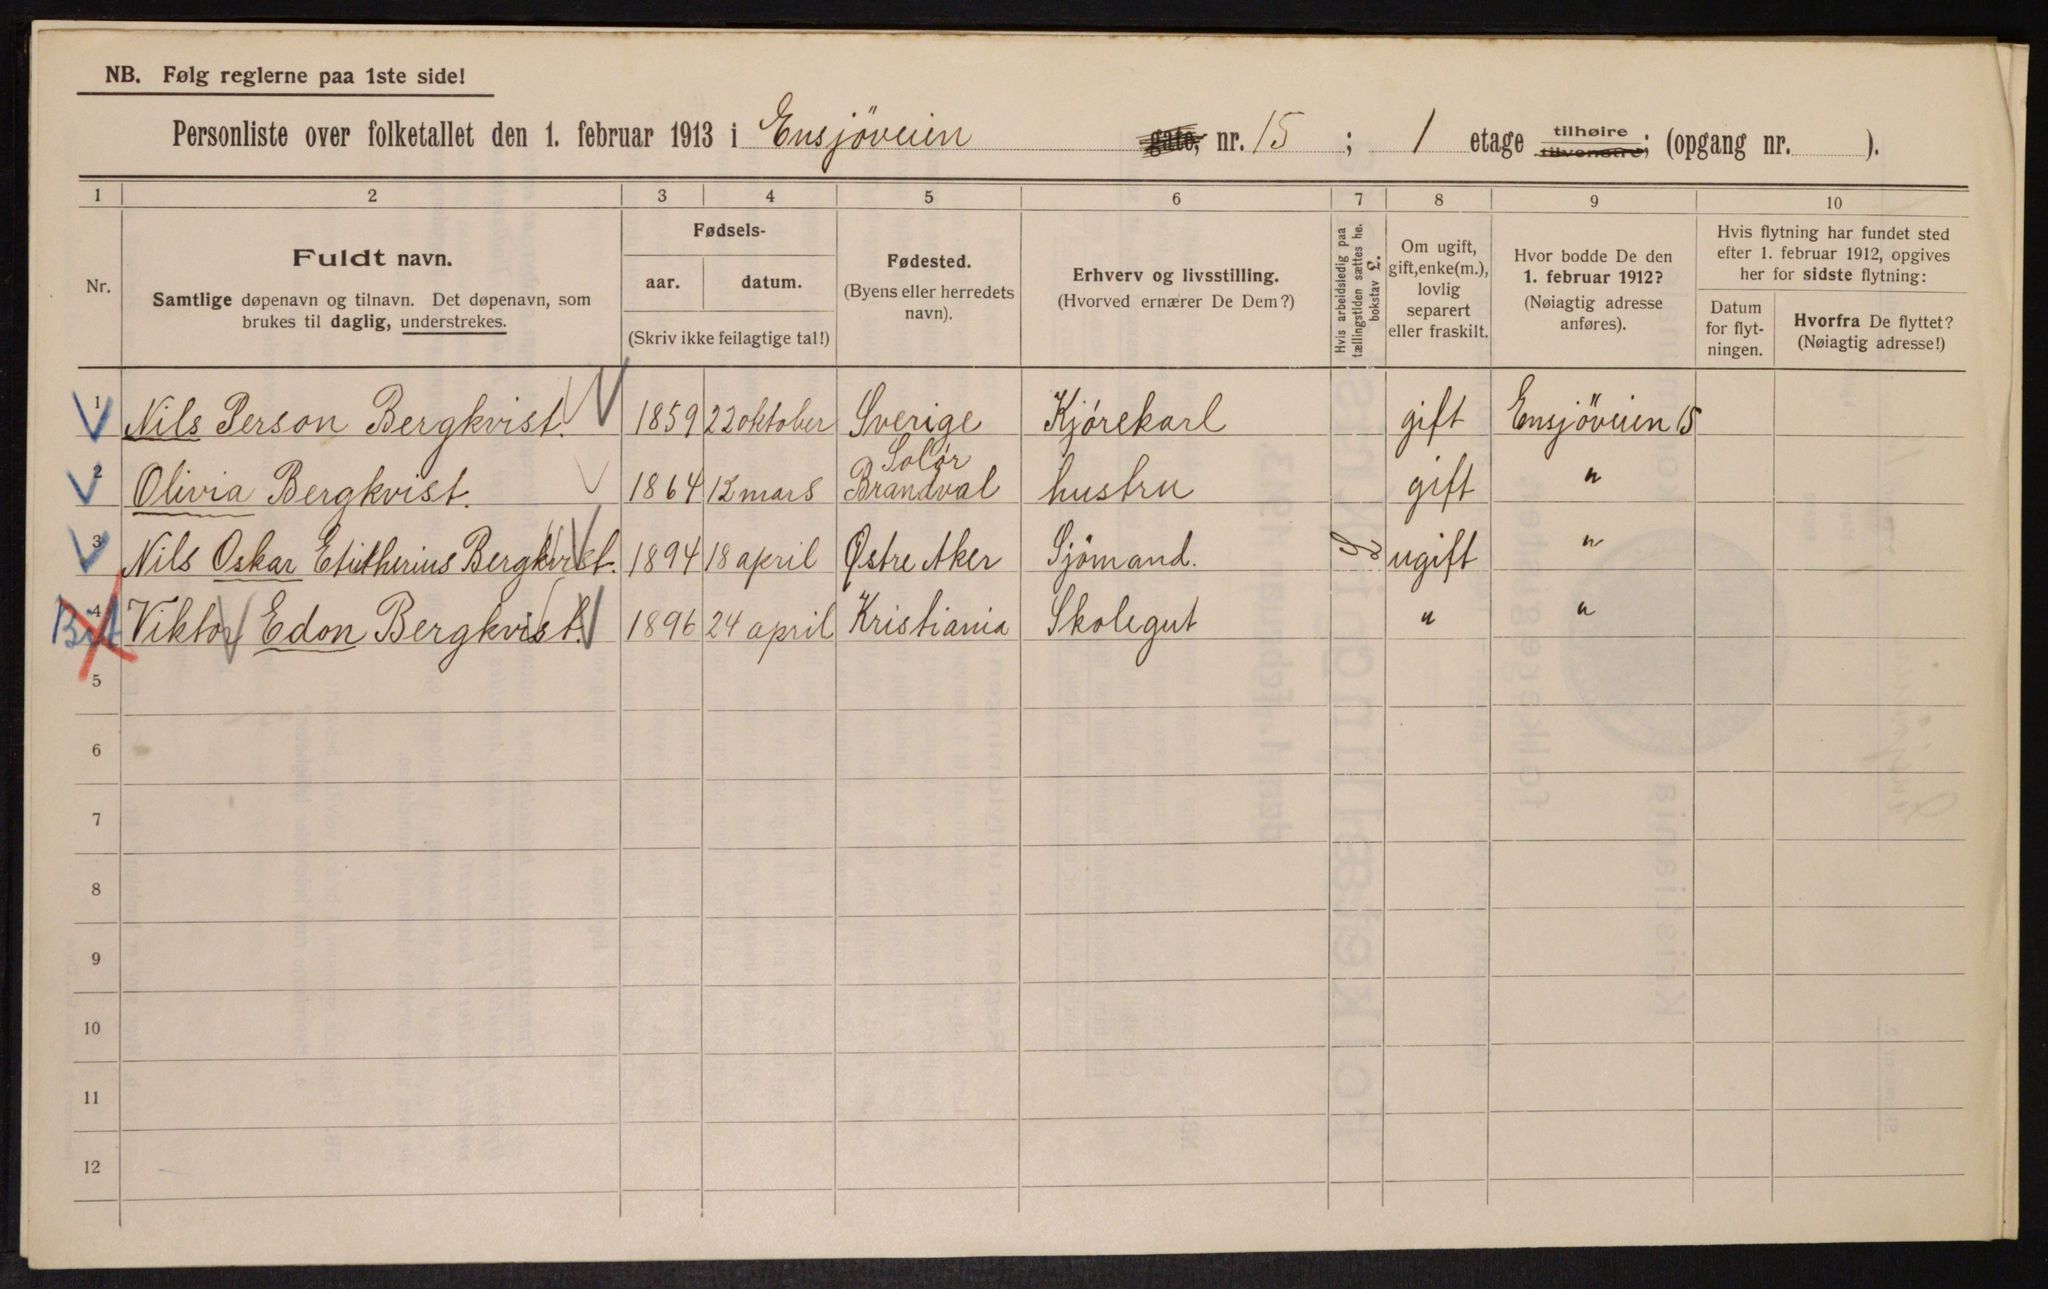 NB. Følg reglerne paa 1ste side!
Personliste over folketallet den 1. februar 1913 i Ensjöveien gate, nr. 15 ; 1 etage tilhøire tilvenstre; (opgang nr. ).
1 2 3 4 5 6 7 8 9 10
Nr.
Fuldt navn.
Samtlige døpenavn og tilnavn. Det døpenavn, som
brukes til daglig, understrekes.
Fødsels-
aar. datum.
(Skriv ikke feilagtige tal!)
Fødested.
(Byens eller herredets
navn).
Erhverv og livsstilling.
(Hvorved ernærer De Dem?)
Hvis arbeidsledig paa
tællingstiden sættes he.
bokstav L.
Om ugift,
gift, enke(m.),
lovlig
separert
eller fraskilt.
Hvor bodde De den
1. februar 1912?
(Nøiagtig adresse
anføres).
Hvis flytning har fundet sted
efter 1. februar 1912, opgives
her for sidste flytning:
Datum
for flyt-
ningen.
Hvorfra De flyttet?
(Nøiagtig adresse!)
1 Nils Person Bergkvist. 1859 22 oktober Sverige Kjörekarl gift Ensjöveien 15
Solör
2 Olivia Bergkvist. 1864 12 mars Brandval hustru gift "
3 Nils Oskar Bergkvist. 1894 18 april Østre Aker Sjömand. L ugift "
4 Viktor Edon Bergkvist. 1896 24 april Kristiania Skolegut " "
5
6
7
8
9
10
11
12